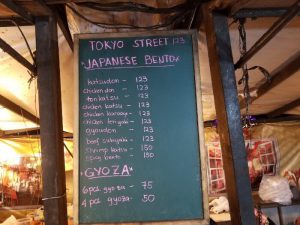 TOKYO STREET 123
"JAPANESE BENTO"
katsudon - 123
chicken don - 123
tonkatsu - 123
chicken katsu - 123
chicken karaage - 123
chicken teriyaki - 123
gyudon - 123
beef sukiyaki - 123
shrimp katsu - 150
spicy bento - 150
"GYOZA"
6 pcs. gyoza - 75
4 pcs. gyoza - 50